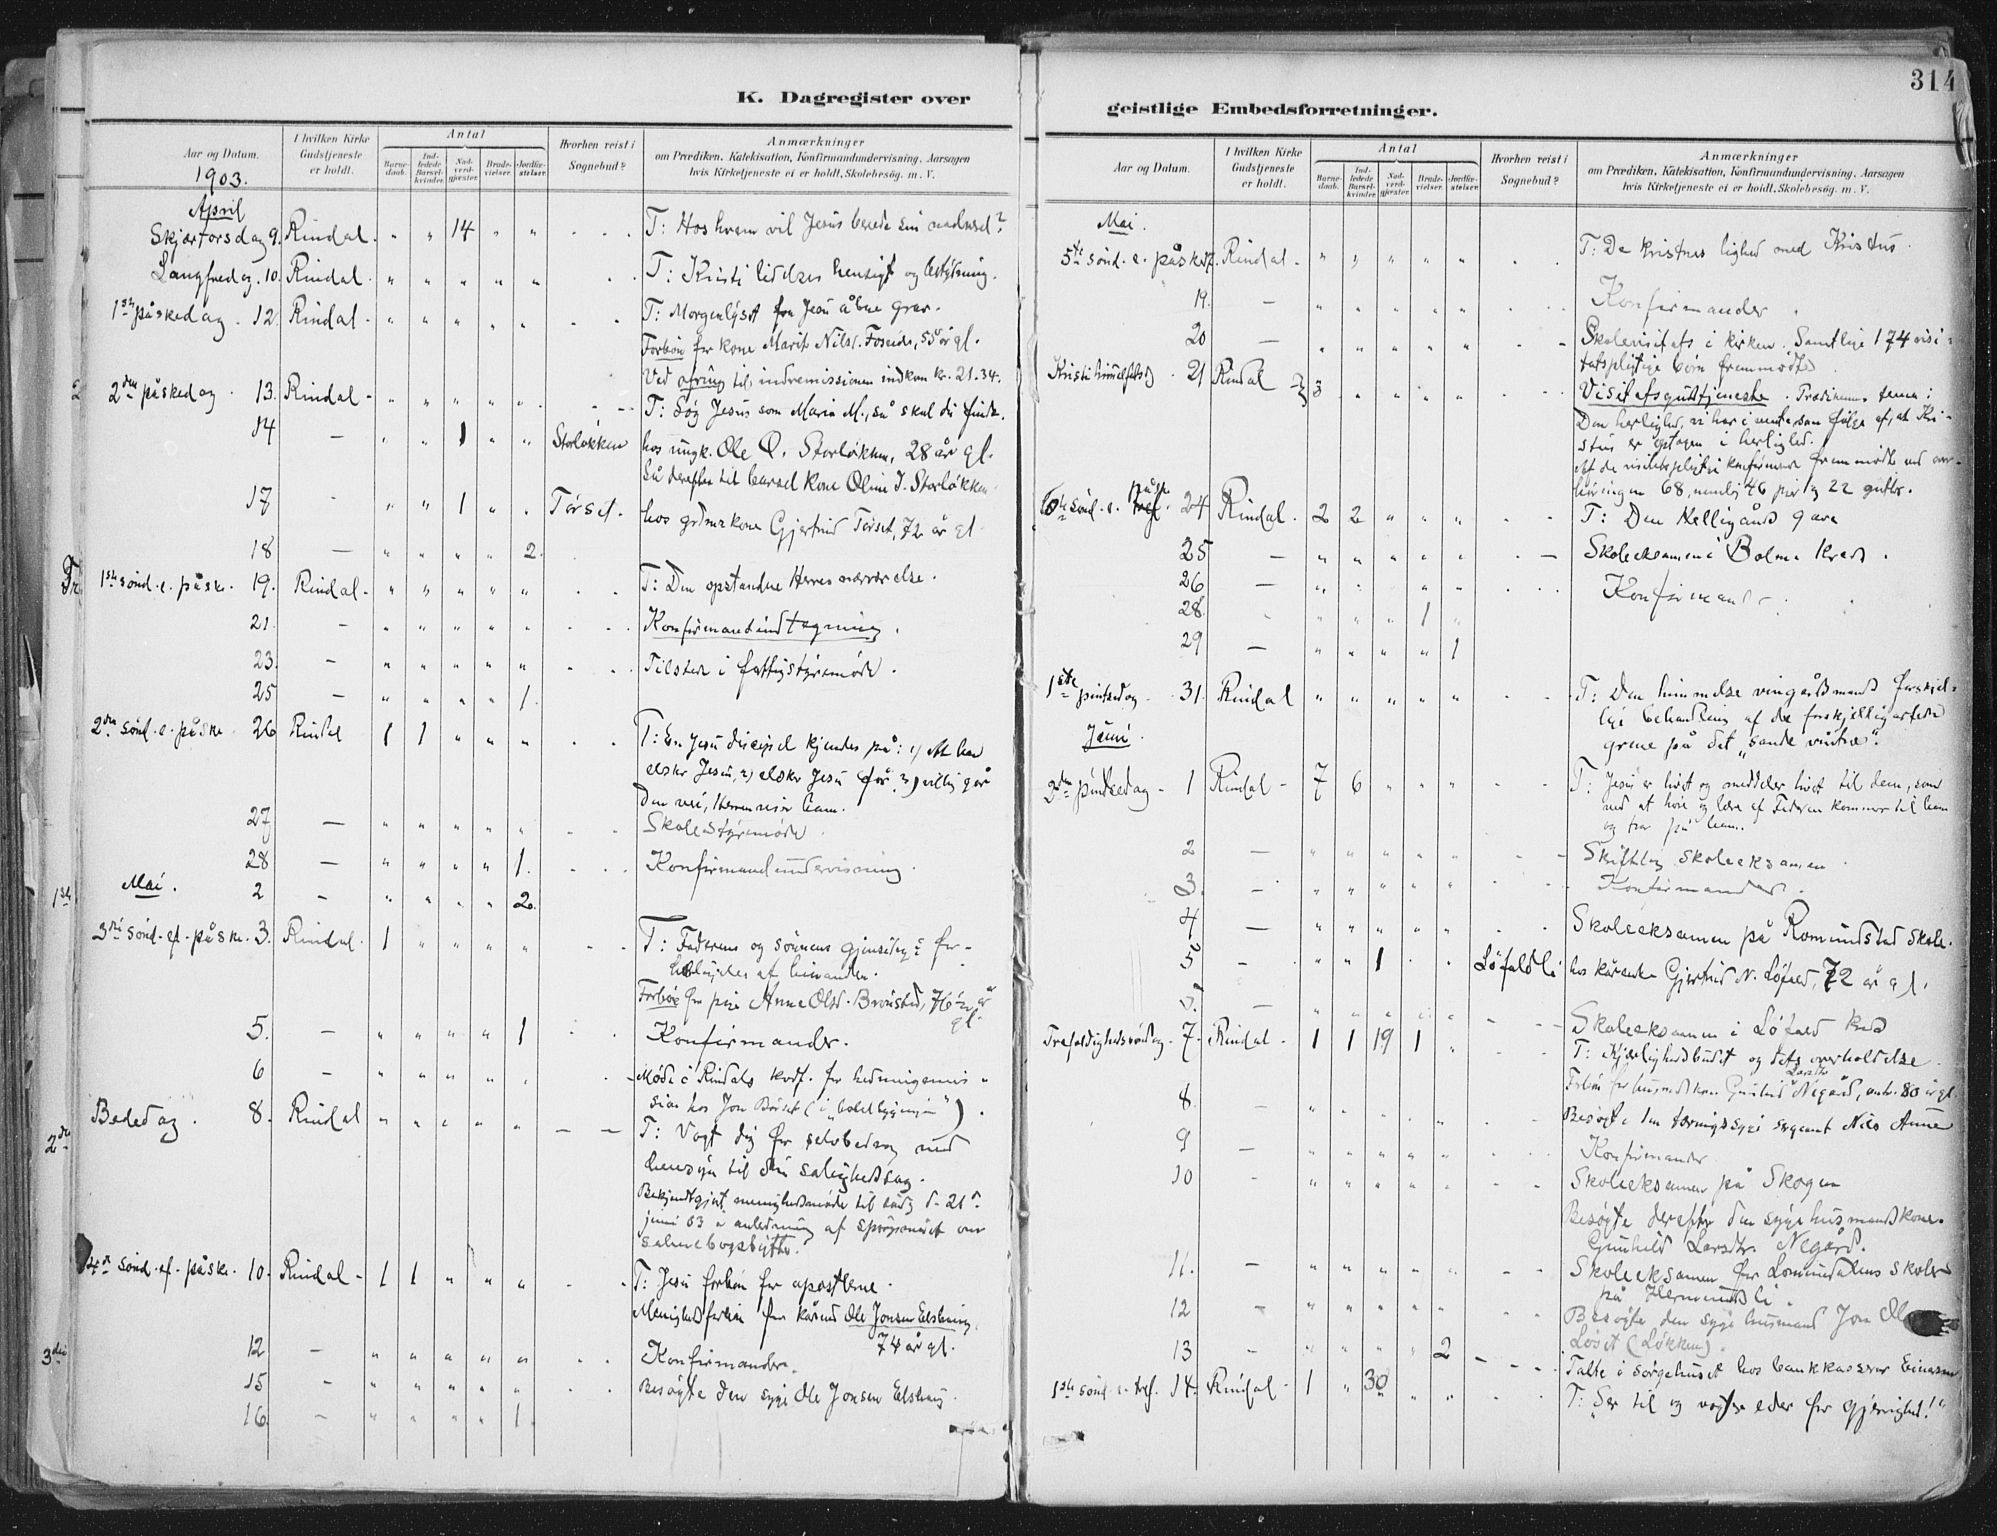 K. Dagregister over
Aar og Datum.
1903.
I hvilken Kirke Gudstjeneste er holdt.
Antal
Barnedaab.
Indledede Barselkvinder.
Nadverdgjester.
Brudevielser.
Jordfæstelser.
Hvorhen reist i Sognebud?
Anmærkninger
om Prædiken, Katekisation, Konfirmandundervisning, Aarsagen
hvis Kirketjeneste ei er holdt, Skolebesøg. m. V.
April
Skjærtorsdag 9. Rindal. " " 14 " " T: Hos hvem vil Jesus berede sin nadverd?
Langfredag. 10. Rindal " " " " " T: Kristi lidelses hensigt og betydning.
1ste påskedag. 12. Rindal - " " " " " T: Morgenlyset fra Jesu åbne grav.
Forbøn for kone Marit Nilsd. Foseide, 55 år gl.
Ved ofring til indremissionen indkom kr. 21.34.
2den påskedag. 13. Rindal - " " " " " T: Søg Jesus som Maria M., så skal du finde.
14 — " " 1 " " Storløkken hos ungk. Ole O. Storløkken, 28 år gl.
Så derefter til barsel kone Oline J. Storløkken
17 - " " 1 " " Tørset. hos grdmrkone Gjertrud Tørset, 72 år gl.
18 — " " " " 2.
1ste sönd. e. påske. 19. Rindal - " " " " " T: Den opstandne Herres nærværelse.
21. — " " " " " Konfirmantindtegning.
23. — " " " " " Tilstede i fattigstyremøde.
25 — " " " " 1.
2den sönd. e. påske 26 Rindal 1 1 " " " T: En Jesu discipel kjendes på: 1) At han
elsker Jesus, 2) elsker Jesu får, 3) villig går
den vei, Herren viser ham.
27 — " " " " " Skolestyremøde
28 — " " " " 1. Konfirmandundervisning.
Mai.
2 - " " " " 2.
3die sönd. ef. påske. 3. Rindal. 1 " " " " T: Faderens og sönnens gjensidige for-
herligelse af hinanden.
Forbøn for pige Anne Olsd. Brønstad, 76 1/2 år
gl.
5. — " " " " 1 Konfirmander.
6 — " " " " " Møde i Rindals krdf. for hedningemis-
sion hos Jon Börset
Bededag. 8. Rindal " " " " " T: Vogt dig for selvbedrag med
hensyn til din salighedssag.
Bekjendtgjort menighedsmøde til søndg d. 21de
juni 03 i anledning af spørgsmålet om
salmebogsbytte.
4de sönd. ef. påske. 10. Rindal - 1 1 " " " T: Jesu forbøn for apostlerne.
Menighedsforbøn for kårmd Ole Jonsen Elshaug,
74 år gl.
12 — " " " " " Konfirmander.
15 - " " " " " Besøgte den syge Ole Jonsen Elshaug.
16 — " " " " 1.
geistlige Embedsforretninger.
314
Aar og Datum.
I hvilken Kirke Gudstjeneste er holdt.
Antal
Barnedaab.
Indledede Barselkvinder.
Nadverdgjester.
Brudevielser.
Jordfæstelser.
Hvorhen reist i Sognebud?
Anmærkninger
om Prædiken, Katekisation, Konfirmandundervisning, Aarsagen
hvis Kirketjeneste ei er holdt, Skolebesøg. m. V.
Mai.
5te sönd. e. påske 17. Rindal - " " " " " T: De kristnes lighed med Kristus.
19. — " " " " " Konfirmander.
20 — " " " " " Skolevisitats i kirken. Samtlige 174 visi-
tatspligtige børn fremmødte
Kristi himmelfartsdg. 21 Rindal 3 " " " " Visitatsgudstjeneste. Prædikenens tema:
Den herlighed, vi har i vente som følge af, at Kri-
stus er optagen i herlighed.
Af de visitatspligtige konfirmerede fremmødte ved over-
høringen 68, nemlig 46 piger og 22 gutter.
6te sönd. e. påske 24 Rindal. 2 2 " " " T: Den Helligånds gave
25 — " " " " " Skoleeksamen i Bolme kreds.
26 — " " " " Konfirmander.
28. " " " 1 "
29 — " " " " 1
1ste pintsedag. 31. Rindal " " " " " T: Den himmelske vingårdsmands forskjel-
lige behandling af de forskjelligartede
grene på det "sande vintræ".
Juni.
2den pintsedag - 1 Rindal - 7 6 " " " T: Jesus er livet og meddeler livet til dem, som
ved at høre og lære af Faderen kommer til ham
og tror på ham.
2 — " " " " " Skiftdg skoleeksamen.
3. — " " " " " Konfirmander.
4 — " " " " " Skoleeksamen på Romundstad skole.
5 - " " 1 " " Løfaldli hos kårenke Gjertrud N. Løfald, 72 år gl.
5. — " " " " " Skoleeksamen i Løfald kreds
Trefoldighedssöndag. 7. Rindal - 1 1 19 1 " T: Kjærlighedsbudet og dets overholdelse.
Forbøn for husmdskone Gunhild Larsdtr Negård, omtr. 80 år gl.
8. — " " " " " Besøgte den tæringssyge sergeant Nils Aune
9 — " " " " " Konfirmander
10 - " " " " " Skoleeksamen på Skogen
Besøgte derefter den syge husmandskone.
Gunhild Larsdtr. Negård.
11. — " " " " " Skoleeksamen for Lomundalens skoler
på Hermundsli.
12 - " " " " " Besøgte den syge husmand Jon Ols
Løset (Løkken).
13 - " " " " 2 Talte i sørgehuset hos bankkasserer Einarsen
1ste sönd. e. tref. 14. Rindal - 1 " 30 " " T: "Ser til og vogter eder for gjerrighed!"